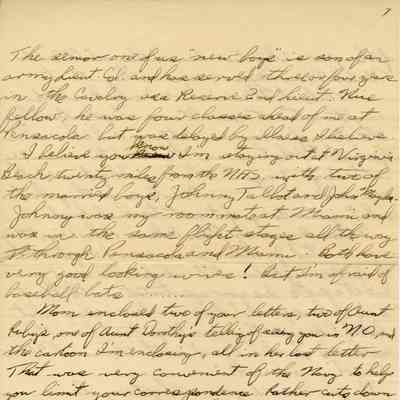 7
The senior one of us "new boys" is son of an
army Lieut Col. and has served three or four years
in the Cavalry as a Reserve 2nd lieut. Nice
fellow; he was four classes ahead of me at
Pensacola but was delayed by illness I believe
I believe you know I'm staying out at Virginia
Beach twenty miles from the NAS, with two of
the married boys, Johnny Talbot and John
Johnny was my roommate at Miami and
was in the same flight stages all the way
through Pensacola and Miami. Both have
very good looking wives! But I'm afraid of
baseball bats
Mom enclosed two of your letters, two of Aunt
Ruby's, one of Aunt Dorothy's telling of seeing you in N.O, and
the cartoon I'm enclosing, all in her last letter
That was very convenient of the Navy to help
you limit your correspondence. Rather cuts down